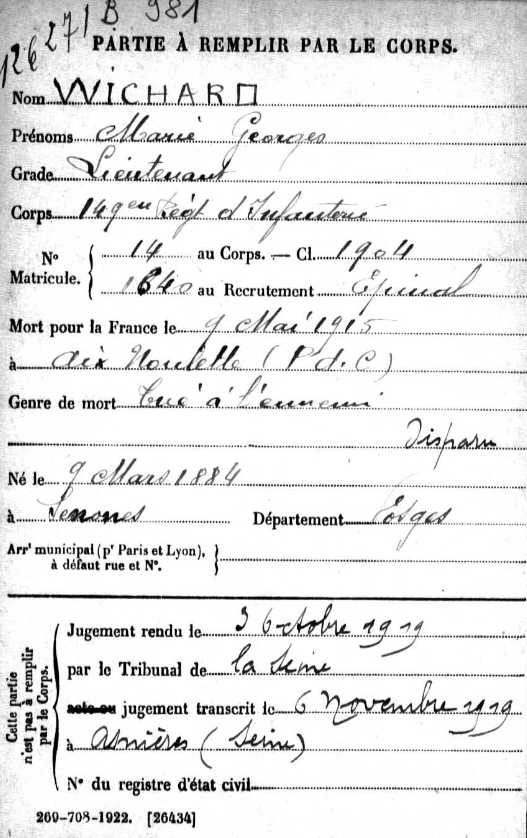 126 271 B 981
PARTIE À REMPLIR PAR LE CORPS.
Nom WICHARD
Prénoms Marie Georges
Grade Lieutenant
Corps 149en Régt d'Infanterie
N° Matricule. 14 au Corps. — Cl. 1904
1640 au Recrutement Epinal
Mort pour la France le 9 Mai 1915
à Aix Noulette (P. d. C)
Genre de mort Tué à l'ennemi
Disparu
Né le 9 Mars 1884
à Senones Département Vosges
Arrt municipal (pr Paris et Lyon),
à défaut rue et N°.
Cette partie n'est pas à remplir par le Corps.
Jugement rendu le 3 Octobre 1919
par le Tribunal de la Seine
acte ou jugement transcrit le 6 Novembre 1919
à Asnières (Seine)
N° du registre d'état civil
269-708-1922. [26434]